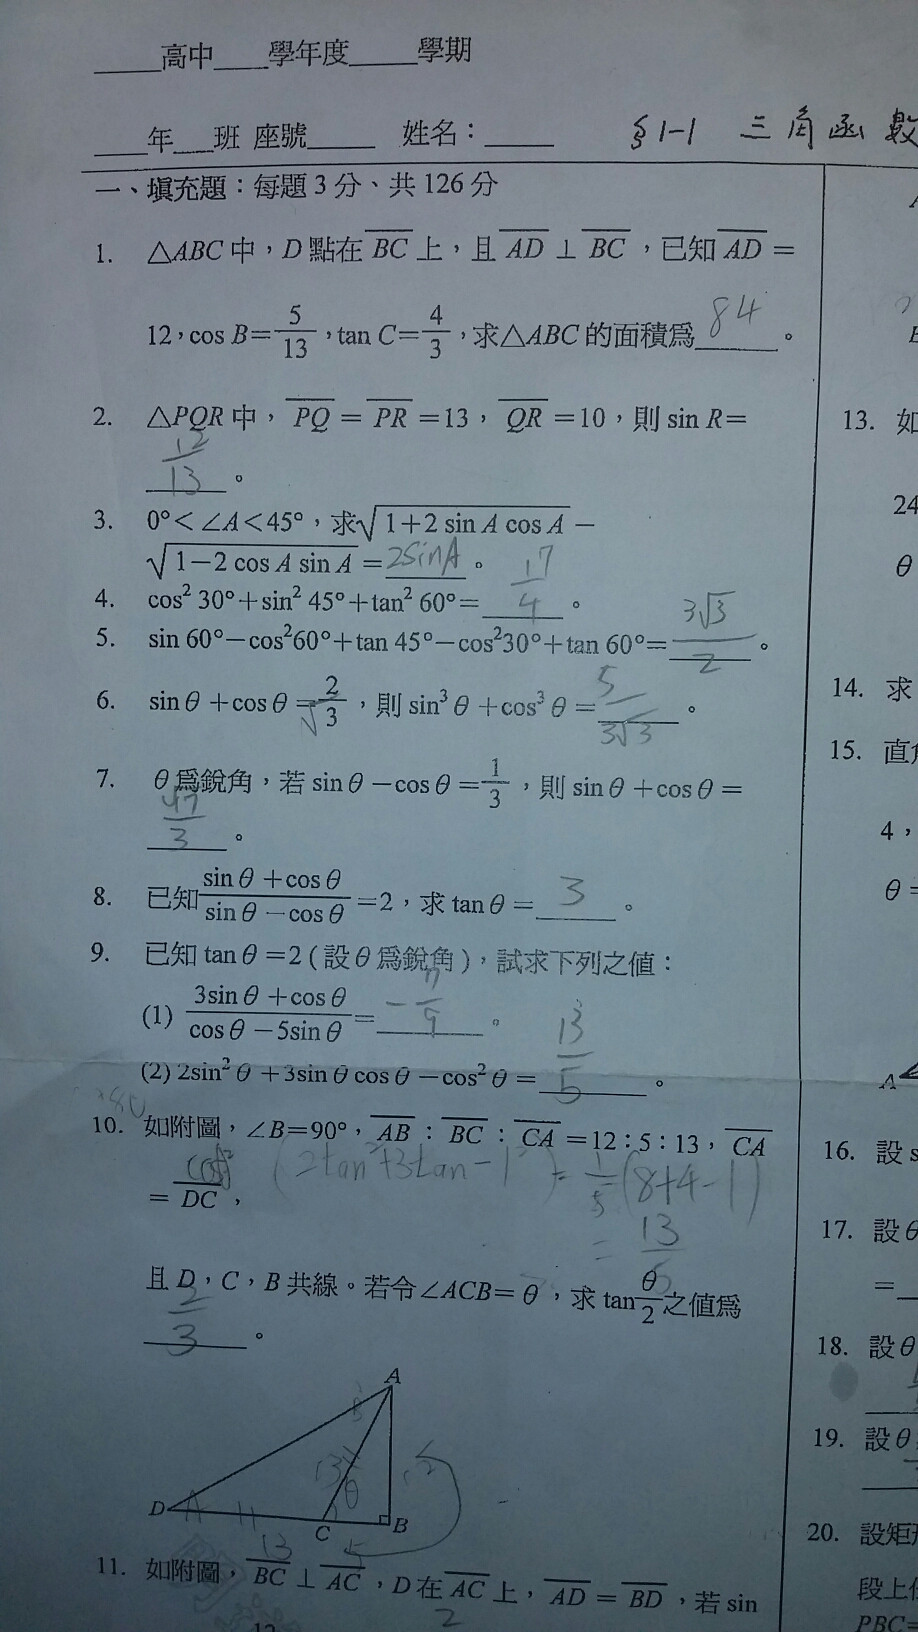 ____高中____學年度____學期
____年___班 座號_____ 姓名：_____ §1-1 三角函數
一、填充題：每題3分、共126分
1. △ABC中，D點在BC上，且AD⊥BC，已知AD＝
12，cos B＝5/13，tan C＝4/3，求△ABC的面積為 84 。
2. △PQR中，PQ＝PR＝13，QR＝10，則sin R＝
12/13 。
3. 0°＜∠A＜45°，求√(1＋2 sin A cos A)－
√(1－2 cos A sin A)＝2sinA。
4. cos² 30°＋sin² 45°＋tan² 60°＝ 17/4 。
5. sin 60°－cos²60°＋tan 45°－cos²30°＋tan 60°＝ 3√3/2 。
6. sinθ＋cosθ＝√2/3，則sin³θ＋cos³θ＝ 5/3√3 。
7. θ為銳角，若sinθ－cosθ＝1/3，則sinθ＋cosθ＝
√17/3 。
8. 已知(sinθ＋cosθ)/(sinθ－cosθ)＝2，求tanθ＝ 3 。
9. 已知tanθ＝2(設θ為銳角)，試求下列之值：
(1) (3sinθ＋cosθ)/(cosθ－5sinθ)＝ －7/9 。
(2) 2sin²θ＋3sinθcosθ－cos²θ＝ 13/5 。
10. 如附圖，∠B＝90°，AB：BC：CA＝12：5：13，CA
＝DC，
cos² (2tan²+3tan-1) = 1/5(8+4-1)
= 13/5
且D，C，B共線。若令∠ACB＝θ，求tan θ/2 之值為
2/3 。
A
13 θ 12
D C B
13 5
11. 如附圖，BC⊥AC，D在AC上，AD＝BD，若sin
12 2
A
13. 如
24
θ
14. 求
15. 直角
4，
θ＝
A
16. 設s
17. 設θ
＝
18. 設θ
19. 設θ
20. 設矩形
段上任
PBC＝